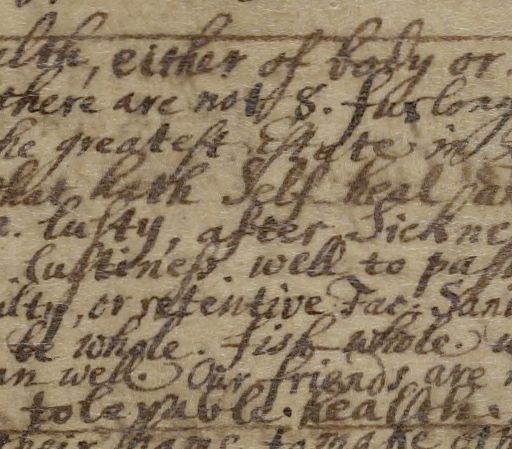 alth, either of body or
there are not 8. furlong
he greatest Estate in
hat hath Self heal
. lusty, after Sickne
. Lustiness. well to pass
ulty, or retentive Fac. Sani
be whole. fish-whole.
an well. Our friends are
tolerable. health.
their name to make